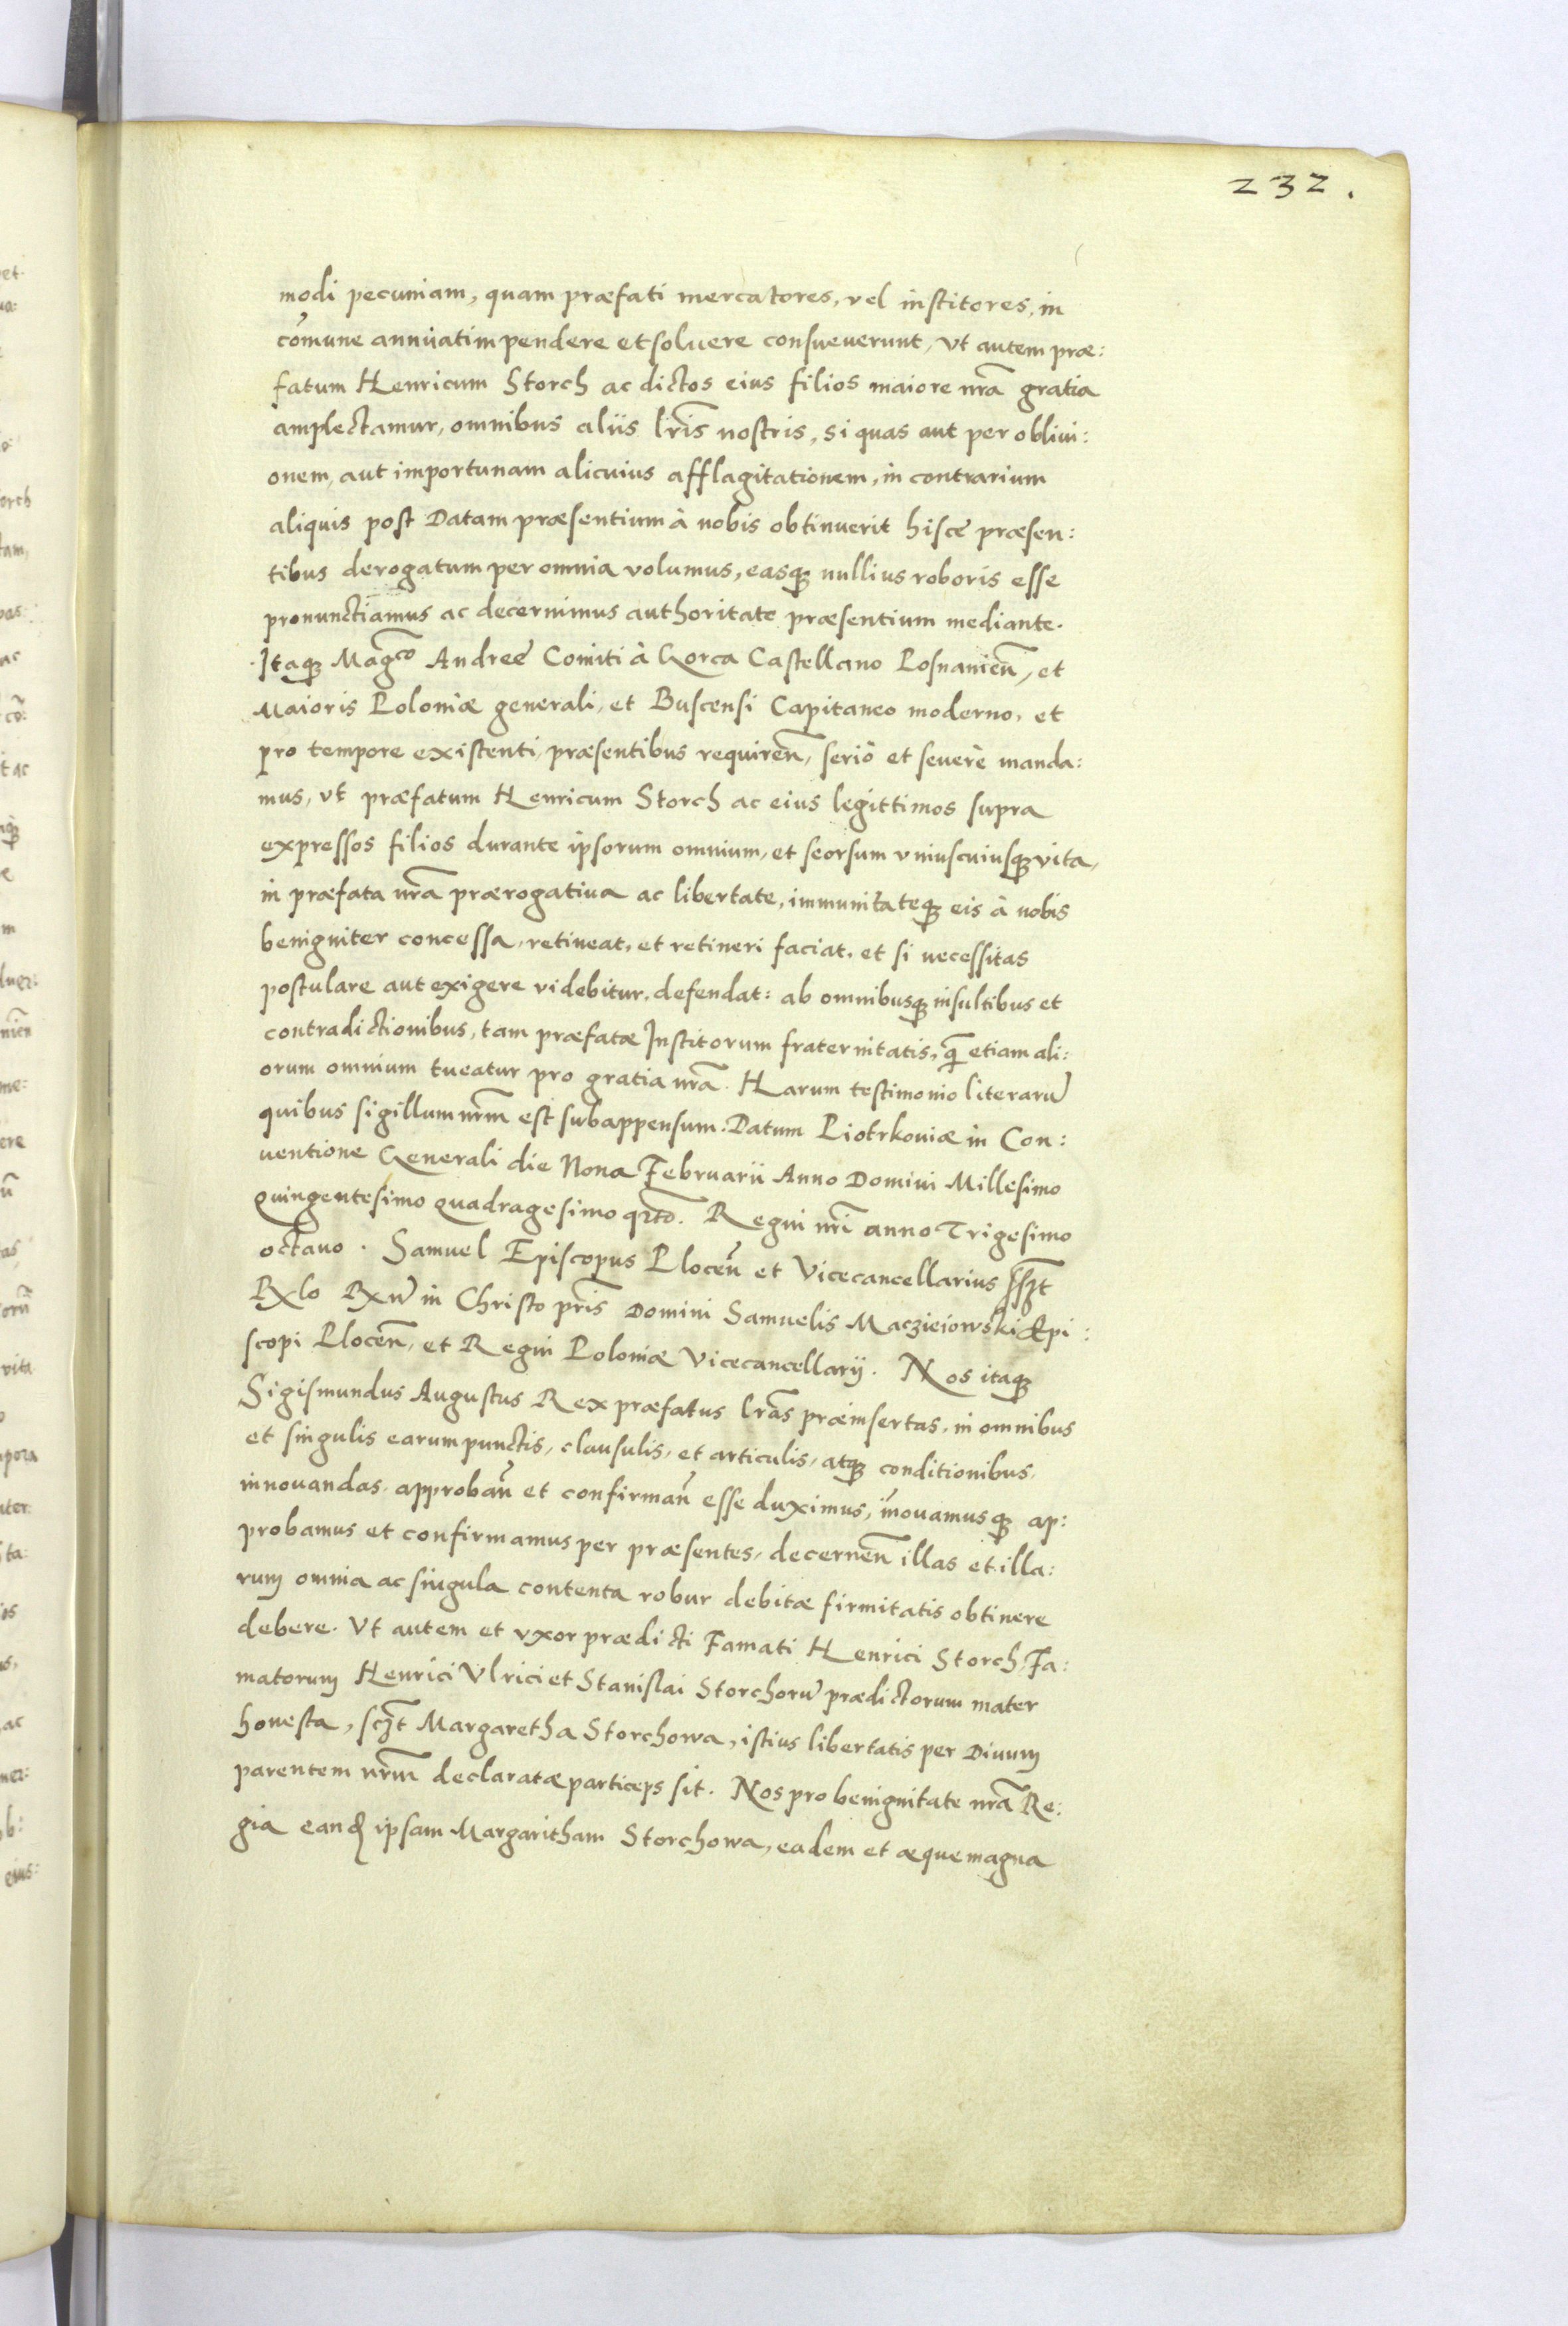 232.
modi pecuniam, quam præfati mercatores, vel institores, in
com̃une annuatim pendere et soluere consueuerunt, Vt autem præ:
fatum Henricum Storch ac dictos eius filios maiore nrã gratia
amplectamur, omnibus aliis lrĩs nostris, si quas aut per obliui:
onem, aut importunam alicuius afflagitationem, in contrarium
aliquis post Datam præsentium à nobis obtinuerit hisce præsen:
tibus derogatum per omnia volumus, easqꝫ nullius roboris esse
pronunctiamus ac decernimus authoritate præsentium mediante.
Itaqꝫ Mag̃co Andreę Comiti à Gorca Castellano Posnanień, et
Maioris Poloniæ generali, et Buscensi Capitaneo moderno, et
pro tempore existenti, præsentibus requireñ, seriò et seuerè manda:
mus, vt præfatum Henricum Storch ac eius legittimos supra
expressos filios durante ipsorum omnium, et seorsum vniuscuiusqꝫ vita,
in præfata nrã prærogatiua ac libertate, immunitateqꝫ eis à nobis
benigniter concessa, retineat, et retineri faciat, et si necessitas
postulare aut exigere videbitur, defendat: ab omnibusqꝫ insultibus et
contradictionibus, tam præfatæ Institorum fraternitatis, q̃ etiam ali:
orum omnium tueatur pro gratia nrã. Harum testimonio literarũ
quibus sigillum nrm̃ est subappensum. Datum Piotrkouiæ in Con:
uentione Generali die Nona Februarii Anno Domini Millesimo
quingentesimo quadragesimo qrto. Regni nrĩ anno Trigesimo
octauo. Samuel Episcopus Plocen̄ et Vicecancellarius sszt
Rxlo Rxũ in Christo pris̃ Domini Samuelis Maczieiowski Epi:
scopi Ploceñ, et Regni Poloniæ Vicecancellarij. Nos itaqꝫ
Sigismundus Augustus Rex præfatus lrãs præinsertas, in omnibus
et singulis earum punctis, clausulis, et articulis, atqꝫ conditionibus,
innouandas, approbañ et confirmañ esse duximus, iñouamusqꝫ ap:
probamus et confirmamus per præsentes, decerneñ illas et illa:
rum omnia ac singula contenta robur debitæ firmitatis obtinere
debere. Vt autem et vxor prædicti Famati Henrici Storch, Fa:
matorum Henrici Vlrici et Stanislai Storchorũ prædictorum mater
honesta, sczt Margaretha Storchowa, istius libertatis per Diuum
parentem nrm̃ declaratæ particeps sit. Nos pro benignitate nrã Re:
gia eand ipsam Margaritham Storchowa, eadem et æque magna